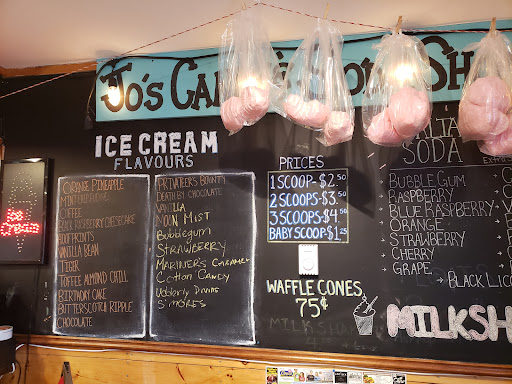 Jo's
ICE CREAM
FLAVOURS
ORANGE PINEAPPLE
MINT CHIP
COFFEE
BLACK RASPBERRY CHEESECAKE
HOOFPRINTS
VANILLA BEAN
TIGER
TOFFEE ALMOND CHILL
BIRTHDAY CAKE
BUTTERSCOTCH RIPPLE
CHOCOLATE
PRIVATEER'S BOUNTY
DEATH BY CHOCOLATE
VANILLA
MOON MIST
Bubblegum
STRAWBERRY
MARINER'S CARAMEL
Cotton Candy
Udderly Divine
S'MORES
PRICES
1 SCOOP - $2.50
2 SCOOPS - $3.50
3 SCOOPS - $4.50
BABY SCOOP - $1.25
WAFFLE CONES
75¢
MILKSHA
SODA
- BUBBLE GUM
- RASPBERRY
- BLUE RASPBERRY
- ORANGE
- STRAWBERRY
- CHERRY
- GRAPE
- BLACK LICO
MILKSH